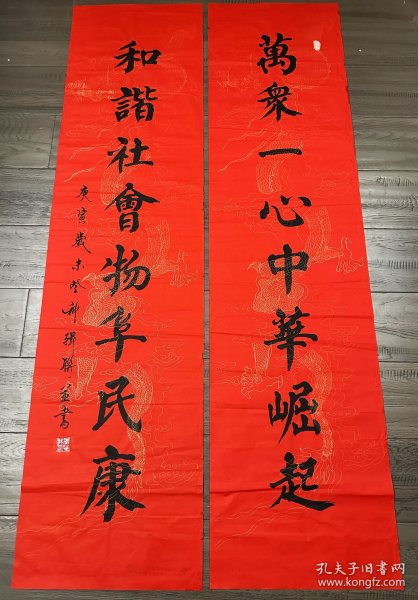 萬衆一心中華崛起
和諧社會物阜民康
庚寅歲末登新撰聯並書
孔夫子旧书网
www.kongfz.com